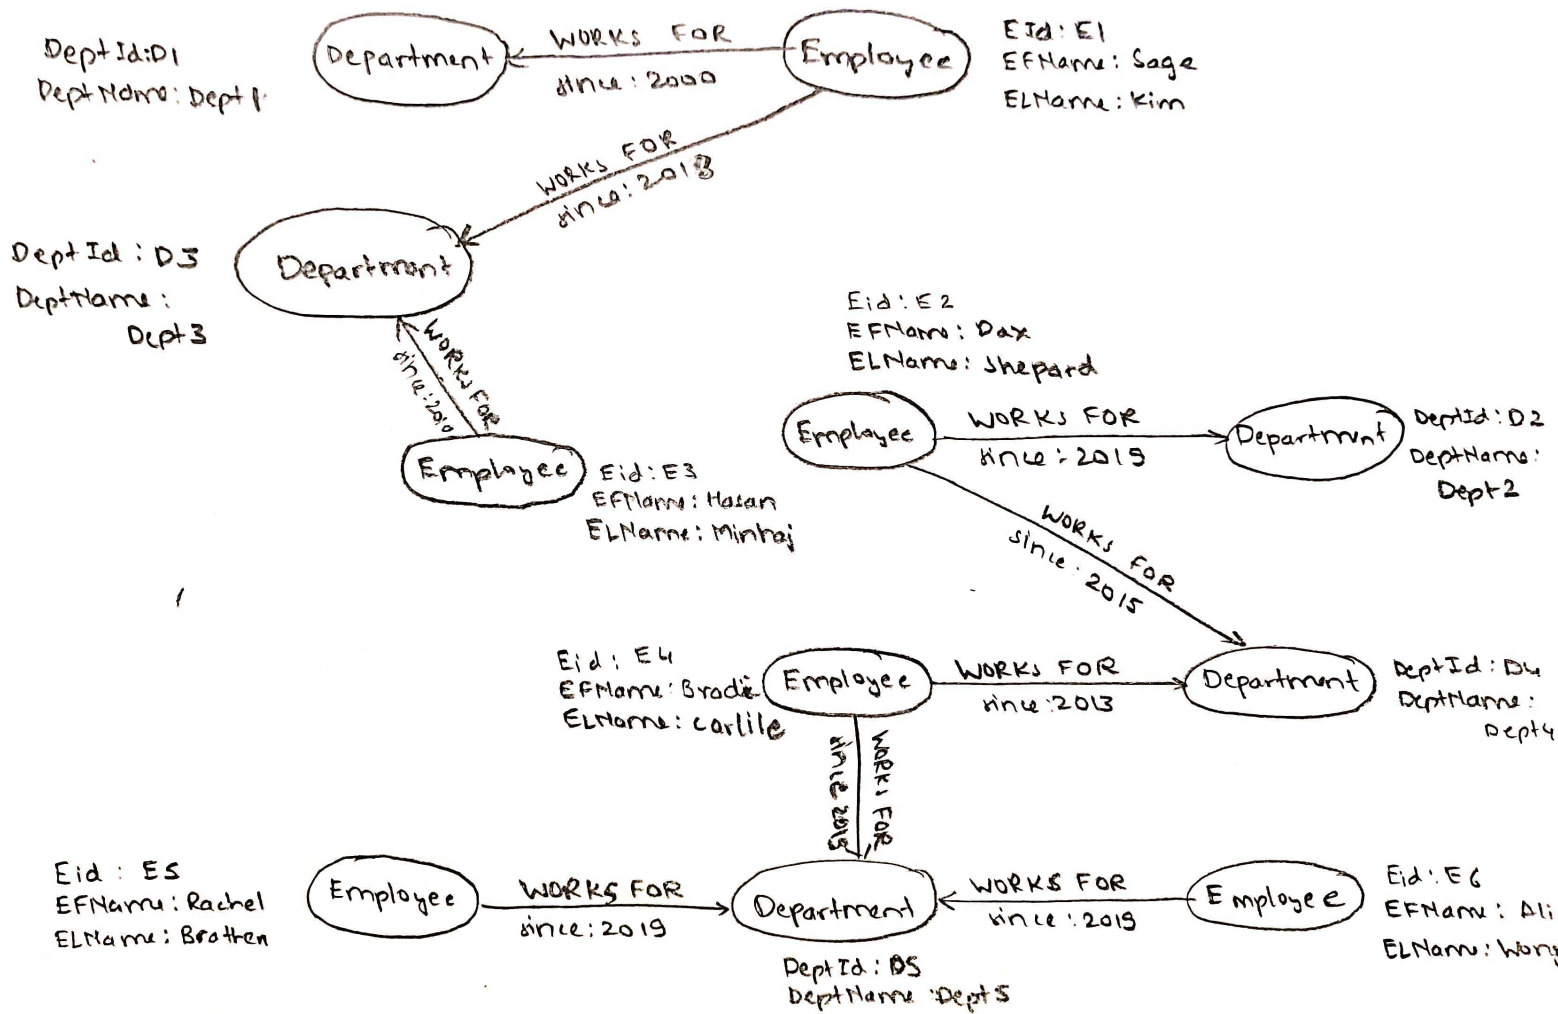 DeptId:D1
DeptName: Dept1
Department
WORKS FOR
since: 2000
Employee
EId: E1
EFName: Sage
ELName: Kim
WORKS FOR
since: 2018
DeptId: D3
DeptName:
Dept3
Department
WORKS FOR
since: 2010
Employee
Eid: E3
EFName: Hasan
ELName: Minhaj
Eid: E2
EFName: Dax
ELName: Shepard
Employee
WORKS FOR
since: 2019
Department
DeptId: D2
DeptName:
Dept2
WORKS FOR
since: 2015
Eid: E4
EFName: Brodie
ELName: Carlile
Employee
WORKS FOR
since: 2013
Department
DeptId: D4
DeptName:
Dept4
WORKS FOR
since 2015
Eid: E5
EFName: Rachel
ELName: Brotten
Employee
WORKS FOR
since: 2019
Department
DeptId: D5
DeptName: Dept5
WORKS FOR
since: 2019
Employee
Eid: E6
EFName: Ali
ELName: Wong